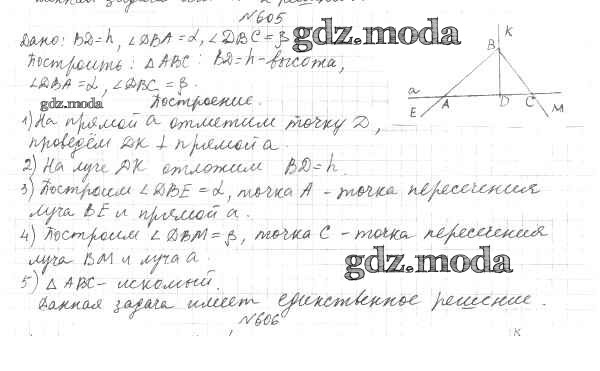 №605
Дано: BD=h, ∠DBA=α, ∠DBC=β
gdz.moda
Построить: △ABC: BD=h-высота,
∠DBA=α, ∠DBC=β.
K
B
a
A
D
C
E
M
gdz.moda Построение.
1) На прямой a отметим точку D,
проведём DK ⊥ прямой a.
2) На луче DK отложим BD=h.
3) Построим ∠DBE=α, точка A - точка пересечения
луча BE и прямой a.
4) Построим ∠DBM=β, точка C - точка пересечения
луча BM и луча a.
gdz.moda
5) △ABC - искомый.
Данная задача имеет единственное решение.
№606
K